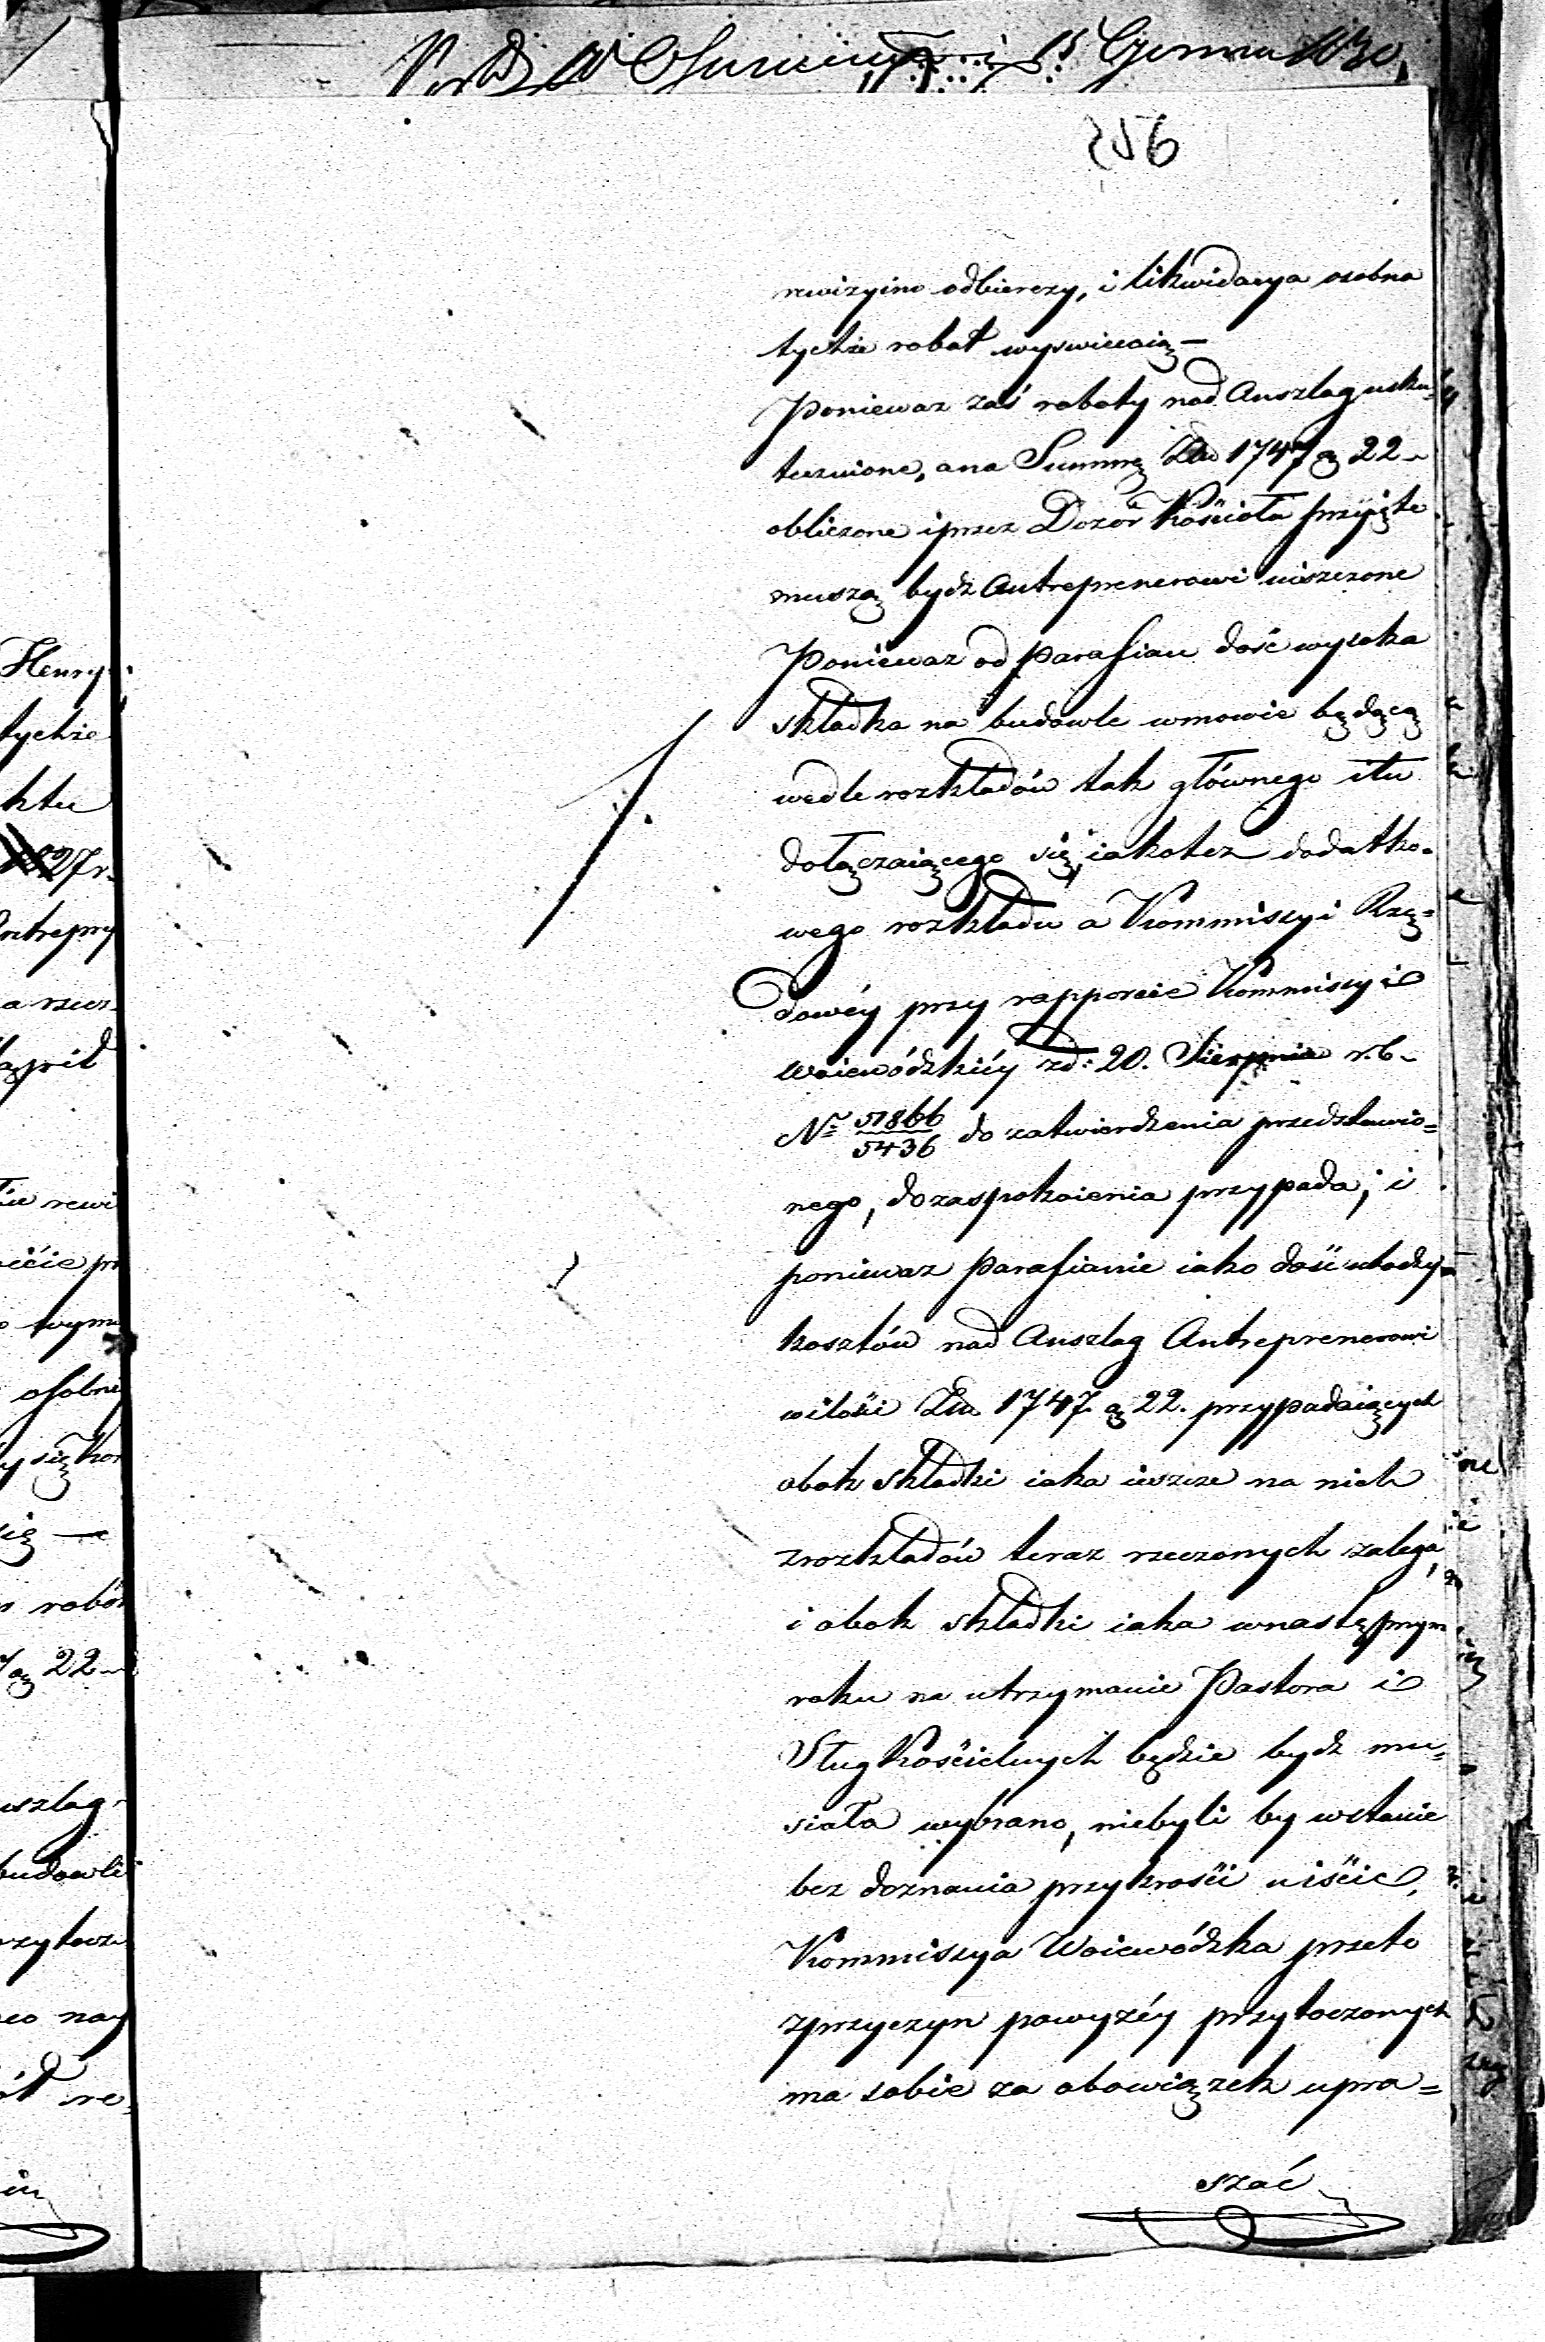 Czerwca 1830.
rewizyine odbierczy, i likwidacya osobna
tychże robot wyswiecaią —
Poniewaz zaś roboty nad Anszlag usku-
tecznione, a na Summę Złp 1747 g 22 -
obliczone i przez Dozór Kościoła przyięte
muszą bydz Antreprenerowi uiszczone
Poniewaz od parafian dość wysoka
składka na budowle w mowie będącą
wedle rozkładów tak głównego i tu
dołączaiącego się, iakotez dodatko-
wego rozkładu a Kommissyi Rzą-
dowéy przy rapporcie Kommissyi
Woiewódzkiéy z d: 20. Sierpnia r. b -
N= 51866/5436 do zatwierdzenia przedstawio=
nego, do zaspokoienia przypada; i
poniewaz Parafianie iako dość ubodzy
kosztów nad Anszlag Antreprenerowi
w ilości Złp 1747 g 22. przypadaiących
obok składki iaka ieszcze na nich
z rozkładów teraz rzeczonych zalega,
i obok składki iaka w następnym
roku na utrzymanie Pastora i
Sług Kościelnych będzie bydz mu=
siała wybrano, niebyli by wstanie
bez doznania przykrości uiścić,
Kommissya Woiewódzka przeto
z przyczyn powyzéy przytoczonych
ma sobie za obowiązek upra=
szać
Henry
tychże
ktu
1827 r.
osobne
g 22 -